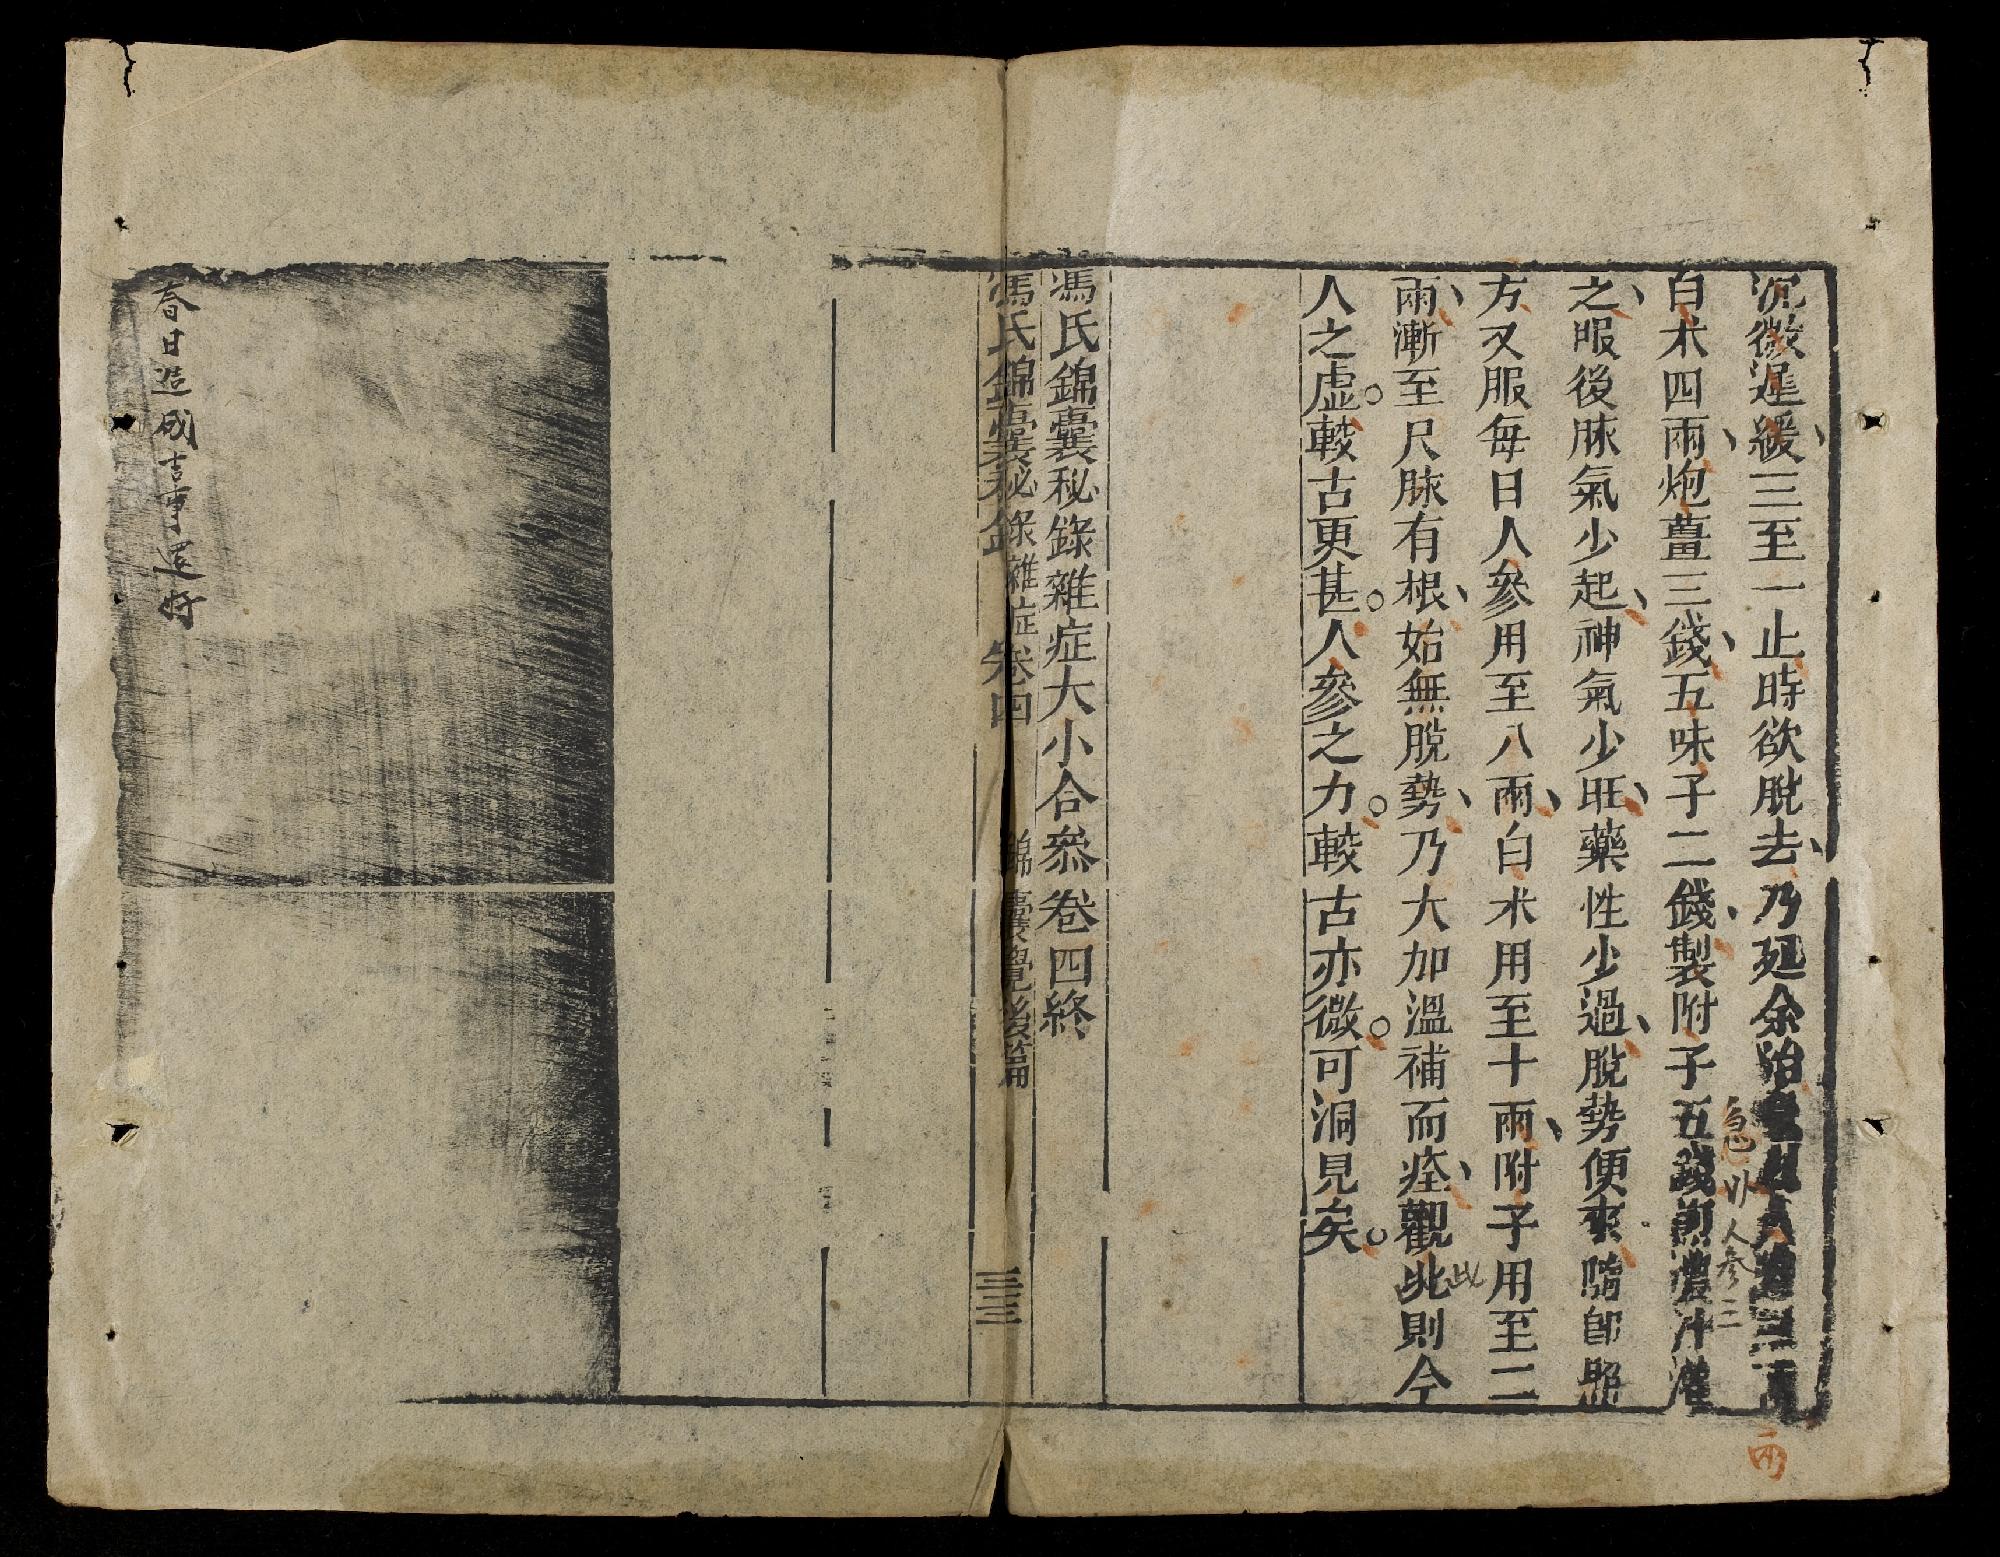 沉微遲緩三至一止時欲脫去乃延余治
急以人參三
兩
白朮四兩炮薑三錢五味子二錢製附子五錢煎濃汁灌
之服後脉氣少起神氣少旺藥性少過脫勢便來隨卽照
方又服每日人參用至八兩白朮用至十兩附子用至二
兩漸至尺脉有根始無脫勢乃大加溫補而痊觀此則今
此
人之虛較古更甚人參之力較古亦微可洞見矣
馮氏錦囊秘錄雜症大小合參卷四終
馮氏錦囊秘錄 雜症卷四 錦囊覺後篇 三三
春日造成吉事還好